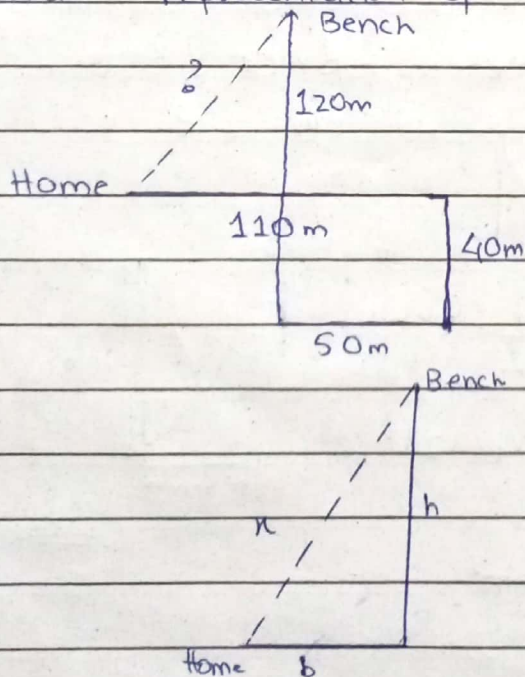 Bench
?
120m
Home
110m
40m
50m
Bench
x
h
Home b